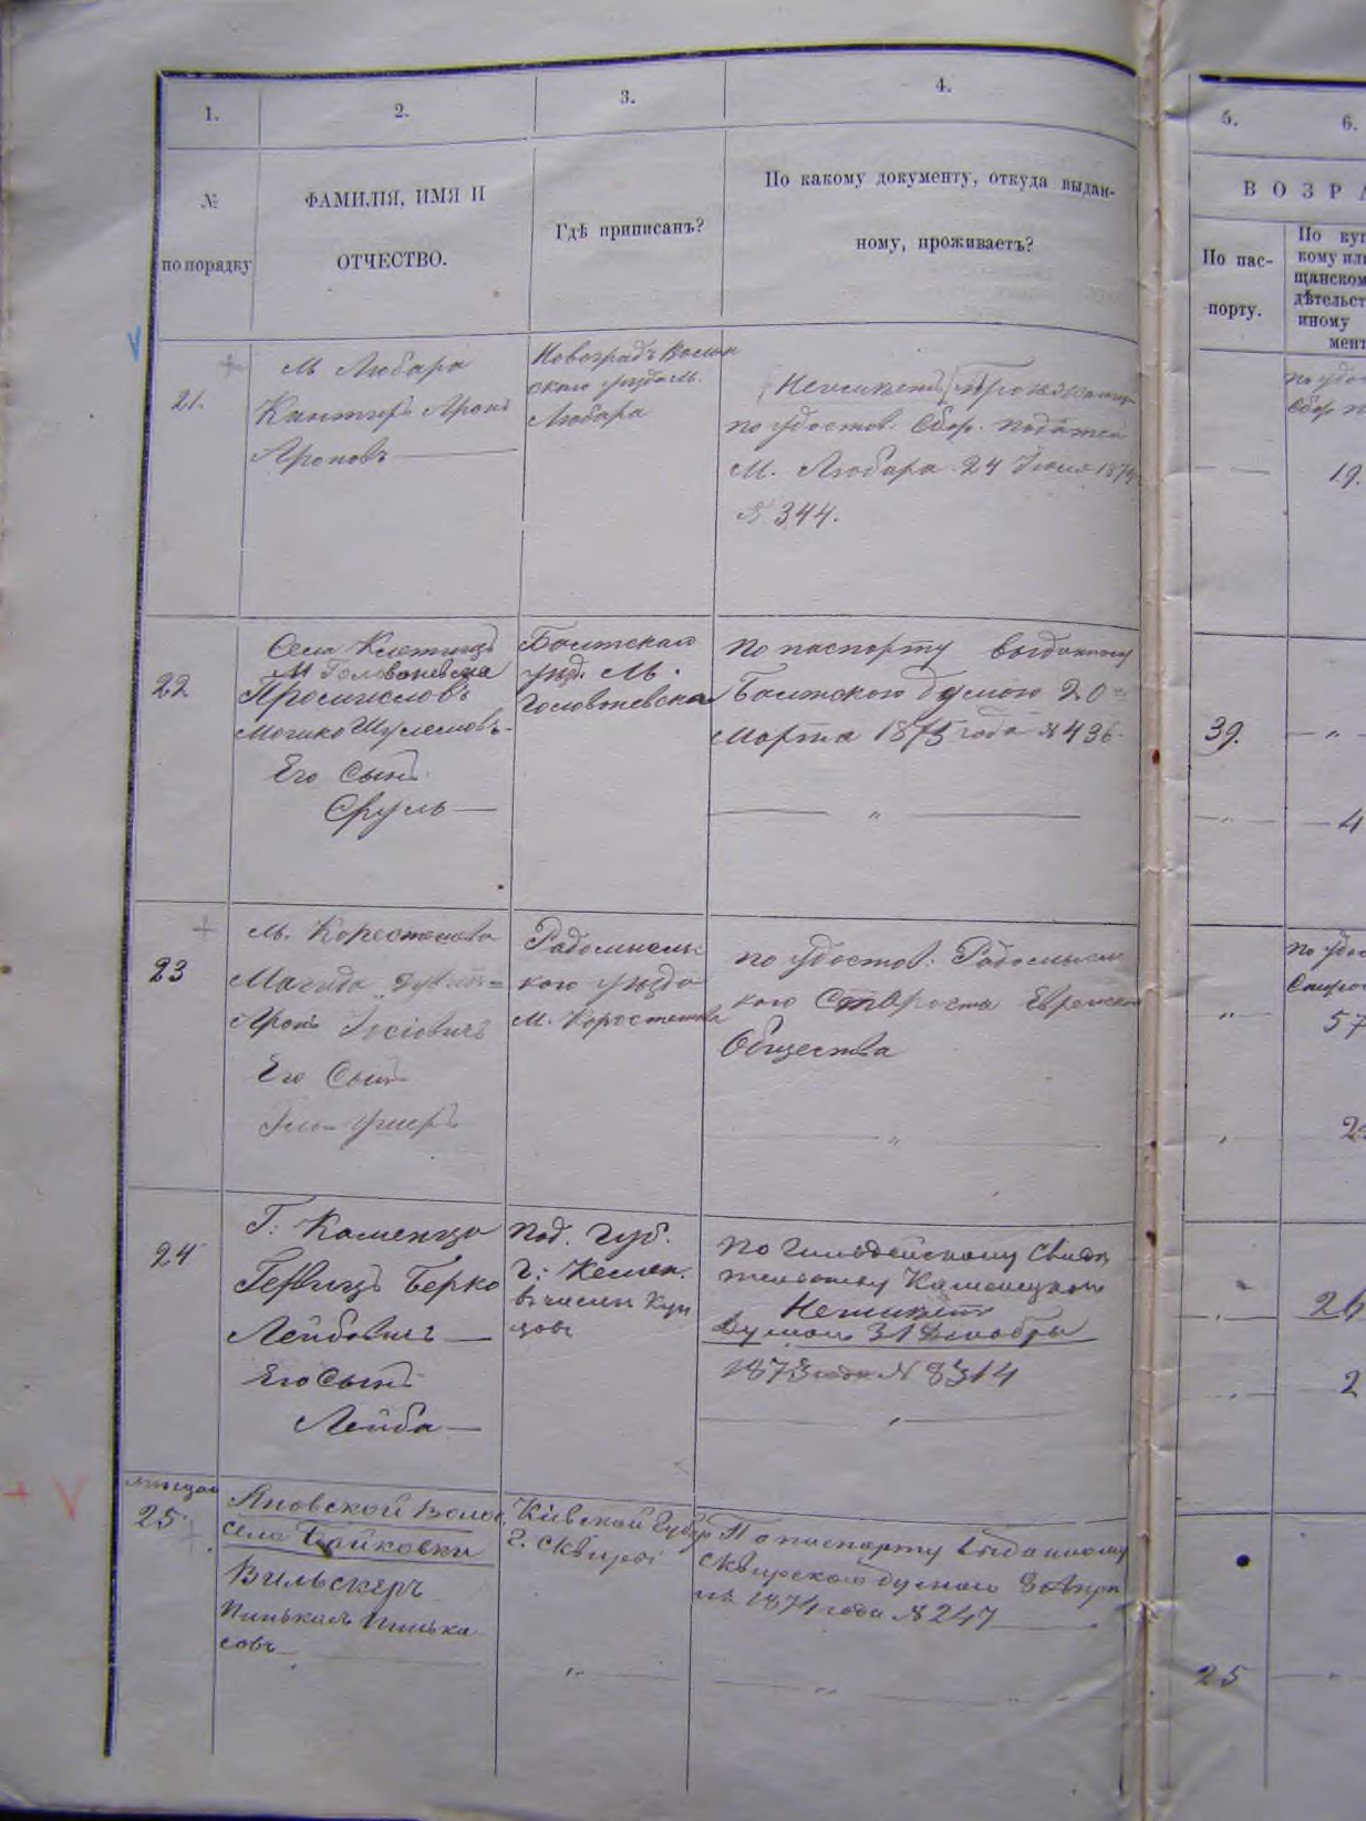 1.
2.
3.
4.
5.
6.
№
по порядку
ФАМИЛІЯ, ИМЯ И
ОТЧЕСТВО.
Гдѣ приписанъ?
По какому документу, откуда выдан-
ному, проживаетъ?
ВОЗРА
По пас-
порту.
По куп
кому или
щанском
дѣтельст
иному
мент
21.
М Любара
Кантиръ Аронъ
Ароновъ
Новоградъ Волын
скаго уезда м.
Любара
Неимѣетъ
по удостов. Сбор. податей
М. Любара 24 Іюня 1874
№ 344.
19.
22
Села
М Головоневска
Промысловъ
Мошко Шулемовъ
Его Сынъ
Сруль
Балтскаго
уезд. М.
Головоневска
По паспорту выданному
Балтскою думою 20
Марта 1875 года № 436.
39.
4
23
М. Коростышева
Магида
Аронъ Іосіовичъ
Его Сынъ
Радомысльс
кого уезда
М. Коростышева
по удостов: Радомысль
кого Старосты Еврейскаго
Общества
по удос
57
24
Г: Каменца
Гервицъ Берко
Лейбовичъ
Его Сынъ
Лейба
Под. Губ.
Г: Камен.
въ числѣ Куп
цовъ
По Гильдейскому Свидѣ
тельству Каменецкою
Неимѣетъ
Думою 31 Декабря
1873 года № 8314
2
25.
Яновской Волос.
села Чайковки
Вильскеръ
Пинькасъ Пинька
совъ
Кіевской Губер
г. Сквиры
По паспорту выданному
Сквирскою думою 8 Апре
ля 1874 года № 247
25